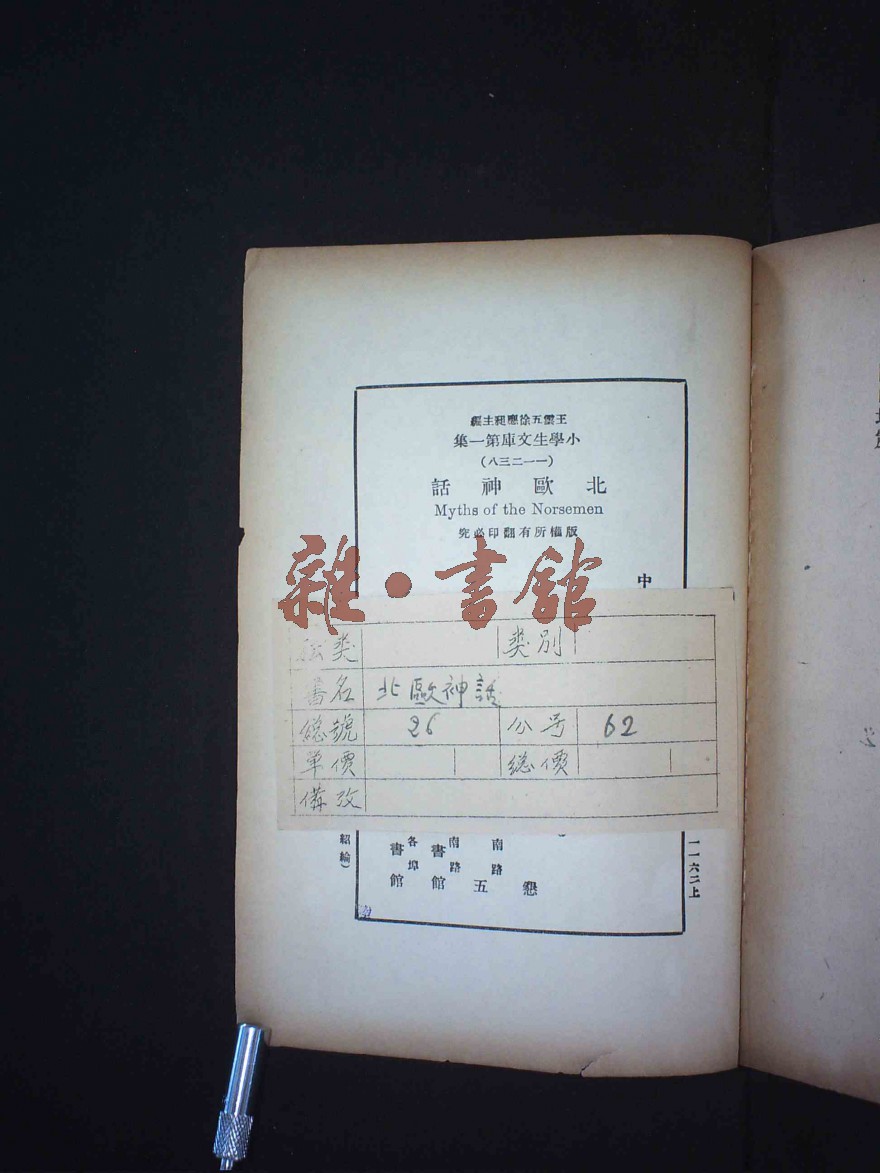 王雲五徐應昶主編
小學生文庫第一集
(一一二三八)
北歐神話
Myths of the Norsemen
版權所有翻印必究
中
雜·書館
类別
書名 北歐神話
總號 26 分号 62
單價 總價
備攷
懇
五
南路
書館
南路
各埠
書館
紹綸)
一一六二上